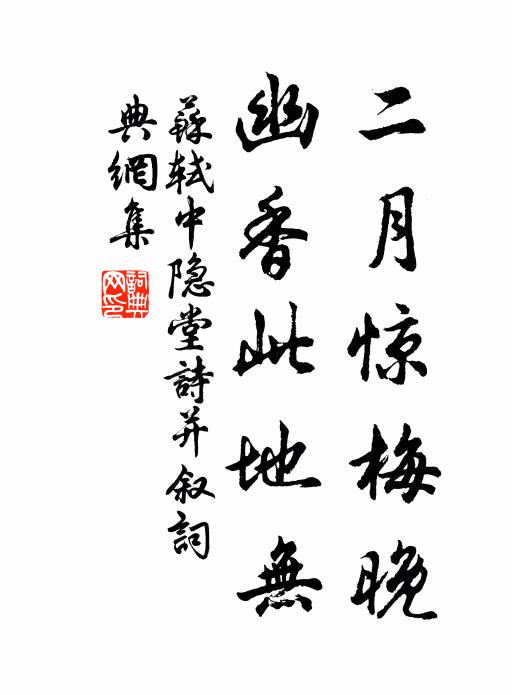 二月惊梅晚
幽香此地無
蘇轼中隐堂詩并叙詞
典網集
詞典网印